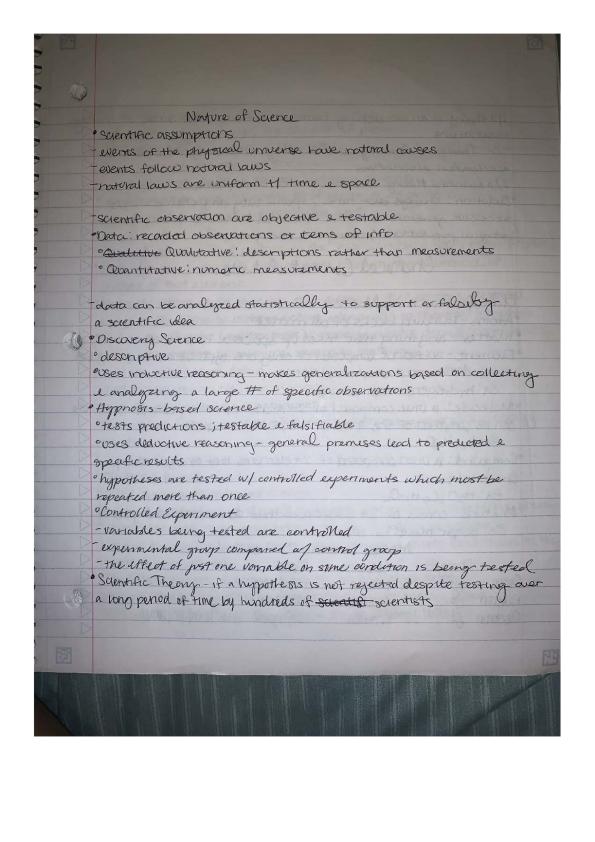 Nature of Science
• Scientific assumptions
- events of the physical universe have natural causes
- events follow natural laws
- natural laws are uniform t/ time & space
- scientific observation are objective & testable
• Data: recorded observations or items of info
° Qualitative: descriptions rather than measurements
° Quantitative: numeric measurements
- data can be analyzed statistically to support or falsify
a scientific idea
• Discovery Science
° descriptive
° uses inductive reasoning - makes generalizations based on collecting
& analyzing a large # of specific observations
• Hypnosis-based science
° tests predictions; testable & falsifiable
° uses deductive reasoning - general premises lead to predicted &
specific results
° hypotheses are tested w/ controlled experiments which must be
repeated more than once
° Controlled Experiment
- variables being tested are controlled
- experimental group compared w/ control group
- the effect of just one variable on same condition is being tested
• Scientific Theory - if a hypothesis is not rejected despite testing over
a long period of time by hundreds of scientists